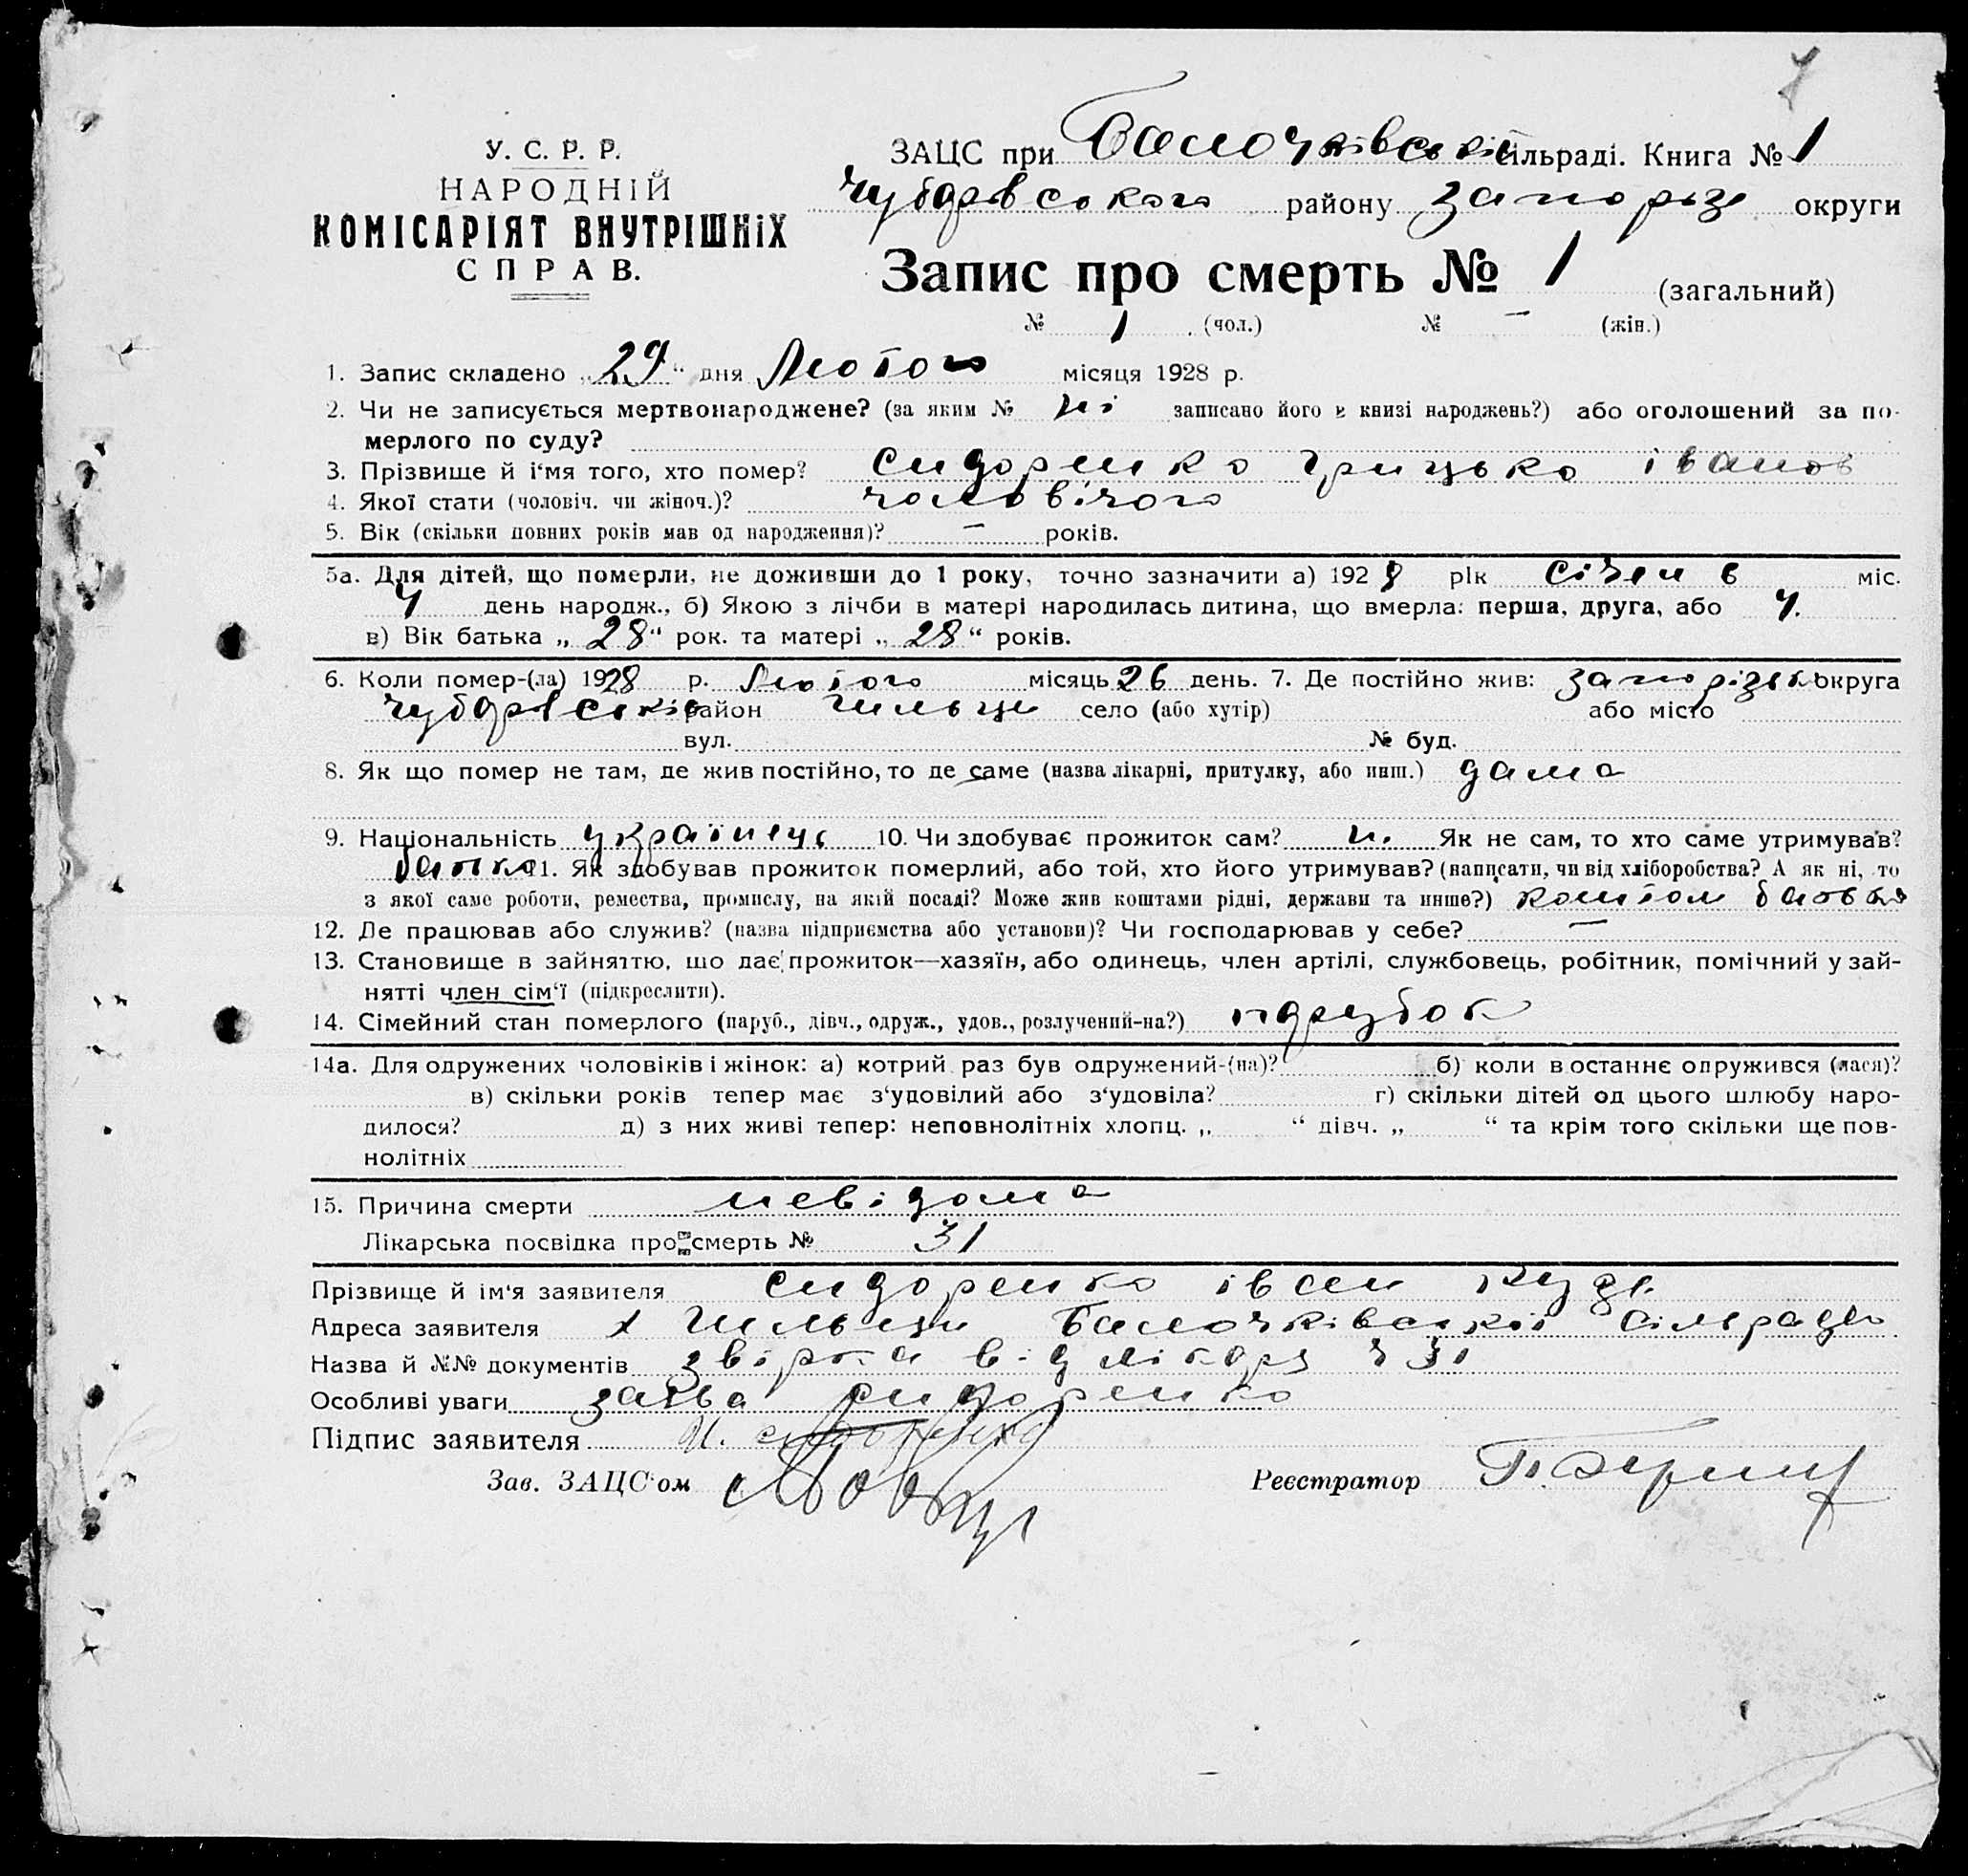 У. С. Р. Р.
НАРОДНІЙ
КОМІСАРІЯТ ВНУТРІШНІХ
СПРАВ.
ЗАЦС при Балочківській сільраді. Книга № 1
Чубарівського району Запорізь округи
Запис про смерть № 1 (загальний)
№ 1 (чол.) № — (жін.)
1. Запис складено „29“ дня Лютого місяця 1928 р.
2. Чи не записується мертвонароджене? (за яким № ні записано його в книзі народжень?) або оголошений за по-
мерлого по суду?
3. Прізвище й і‘мя того, хто помер? Сидоренко Грицько Іванов
4. Якої стати (чоловіч. чи жіноч.)? чоловічого
5. Вік (скільки повних років мав од народження)? — років.
5а. Для дітей, що померли, не доживши до 1 року, точно зазначити а) 1928 рік січень міс.
4 день народж., б) Якою з лічби в матері народилась дитина, що вмерла: перша, друга, або 4.
в) Вік батька „28“ рок. та матері „28“ років.
6. Коли помер-(ла) 1928 р. Лютого місяць 26 день. 7. Де постійно жив: Запорізьк округа
Чубарівській район Гильци село (або хутір) або місто
вул. № буд.
8. Як що помер не там, де жив постійно, то де саме (назва лікарні, притулку, або инш.) дама
9. Національність українець 10. Чи здобуває прожиток сам? н. Як не сам, то хто саме утримував?
батько 11. Як здобував прожиток померлий, або той, хто його утримував? (написати, чи від хліборобства? А як ні, то
з якої саме роботи, ремества, промислу, на якій посаді? Може жив коштами рідні, держави та инше?) коштом батька
12. Де працював або служив? (назва підприємства або установи)? Чи господарював у себе? —
13. Становище в зайняттю, що дає прожиток—хазяїн, або одинець, член артілі, службовець, робітник, помічний у зай-
нятті член сім‘ї (підкреслити).
14. Сімейний стан померлого (паруб., дівч., одруж., удов., розлучений-на?) парубок
14а. Для одружених чоловіків і жінок: а) котрий раз був одружений-(на)? б) коли востаннє одружився (лася)?
в) скільки років тепер має з‘удовілий або з‘удовіла? г) скільки дітей од цього шлюбу наро-
дилося? д) з них живі тепер: неповнолітніх хлопц. „ “ дівч. „ “ та крім того скільки ще пов-
нолітніх
15. Причина смерти невідома
Лікарська посвідка про смерть № 31
Прізвище й ім‘я заявителя Сидоренко Іван
Адреса заявителя х Гильци Балочківської Сільради
Назва й №№ документів від лікаря ч 31
Особливі уваги заява Сидоренко
Підпис заявителя И. Сидоренко
Зав. ЗАЦС‘ом
Реєстратор